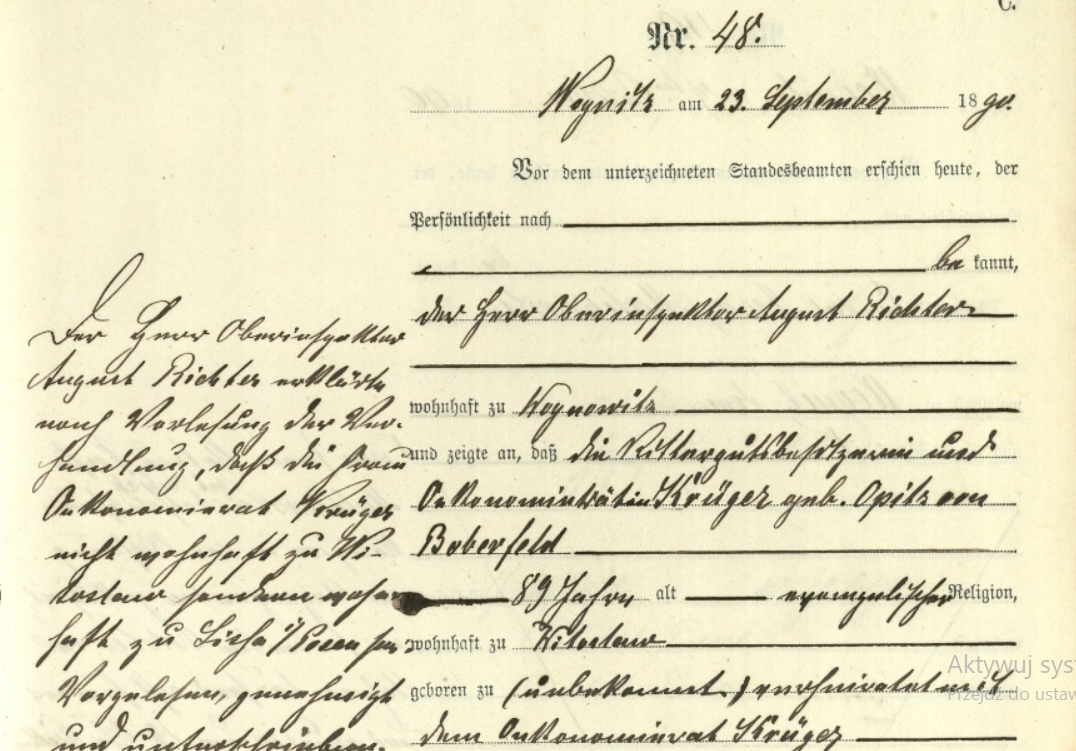 C.
Nr. 48.
am 23. September 1890.
Vor dem unterzeichneten Standesbeamten erschien heute, der
Persönlichkeit nach
bekannt,
der Herr Oberinspektor August Richter
wohnhaft zu
und zeigte an, daß die Rittergutsbesitzerin und
Krüger geb. Opitz von
Boberfeld
89 Jahre alt evangelischer Religion,
wohnhaft zu Witoslaw
geboren zu (unbekannt) verheiratet mit
dem Oekonomierat Krüger
Der Herr Oberinspektor
August Richter erklärte
nach Vorlesung der Ver-
handlung, daß die Frau
Oekonomierat Krüger
nicht wohnhaft zu Wi-
toslaw sondern wohn-
haft zu Lissa i/Posen sei
Vorgelesen, genehmigt
und unterschrieben.
Aktywuj sys
Przejdź do ustaw